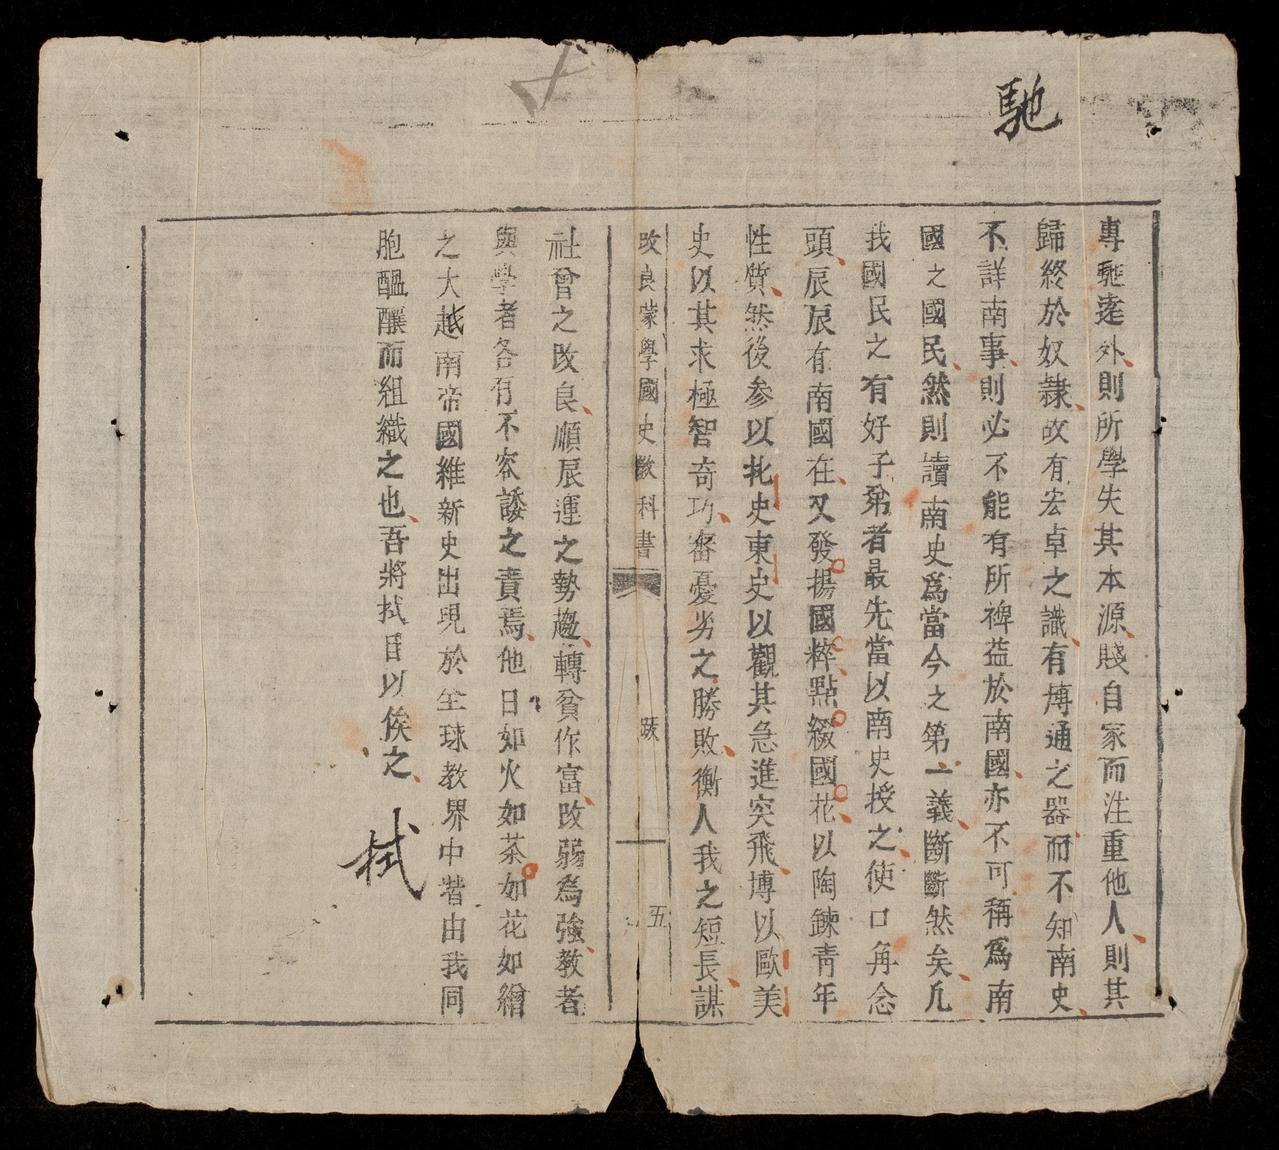 馳
專馳遠外則所學失其本源賤自家而注重他人則其
歸終於奴隸故有宏卓之識有博通之器而不知南史
不詳南事則必不能有所裨益於南國亦不可稱爲南
國之國民然則讀南史爲當今之第一義斷斷然矣凡
我國民之有好子弟者最先當以南史授之使口角念
頭辰辰有南國在又發揚國粹點綴國花以陶鍊青年
性質然後參以北史東史以觀其急進突飛博以歐美
史以其求極智奇巧審憂劣之勝敗衡人我之短長謀
改良蒙學國史教科書
跋
五
社會之改良順辰運之勢趨轉貧作富改弱爲強教者
與學者各有不容諉之責焉他日如火如茶如花如繒
之大越南帝國維新史出現於全球教界中皆由我同
胞醞釀而組織之也吾將拭目以俟之
拭